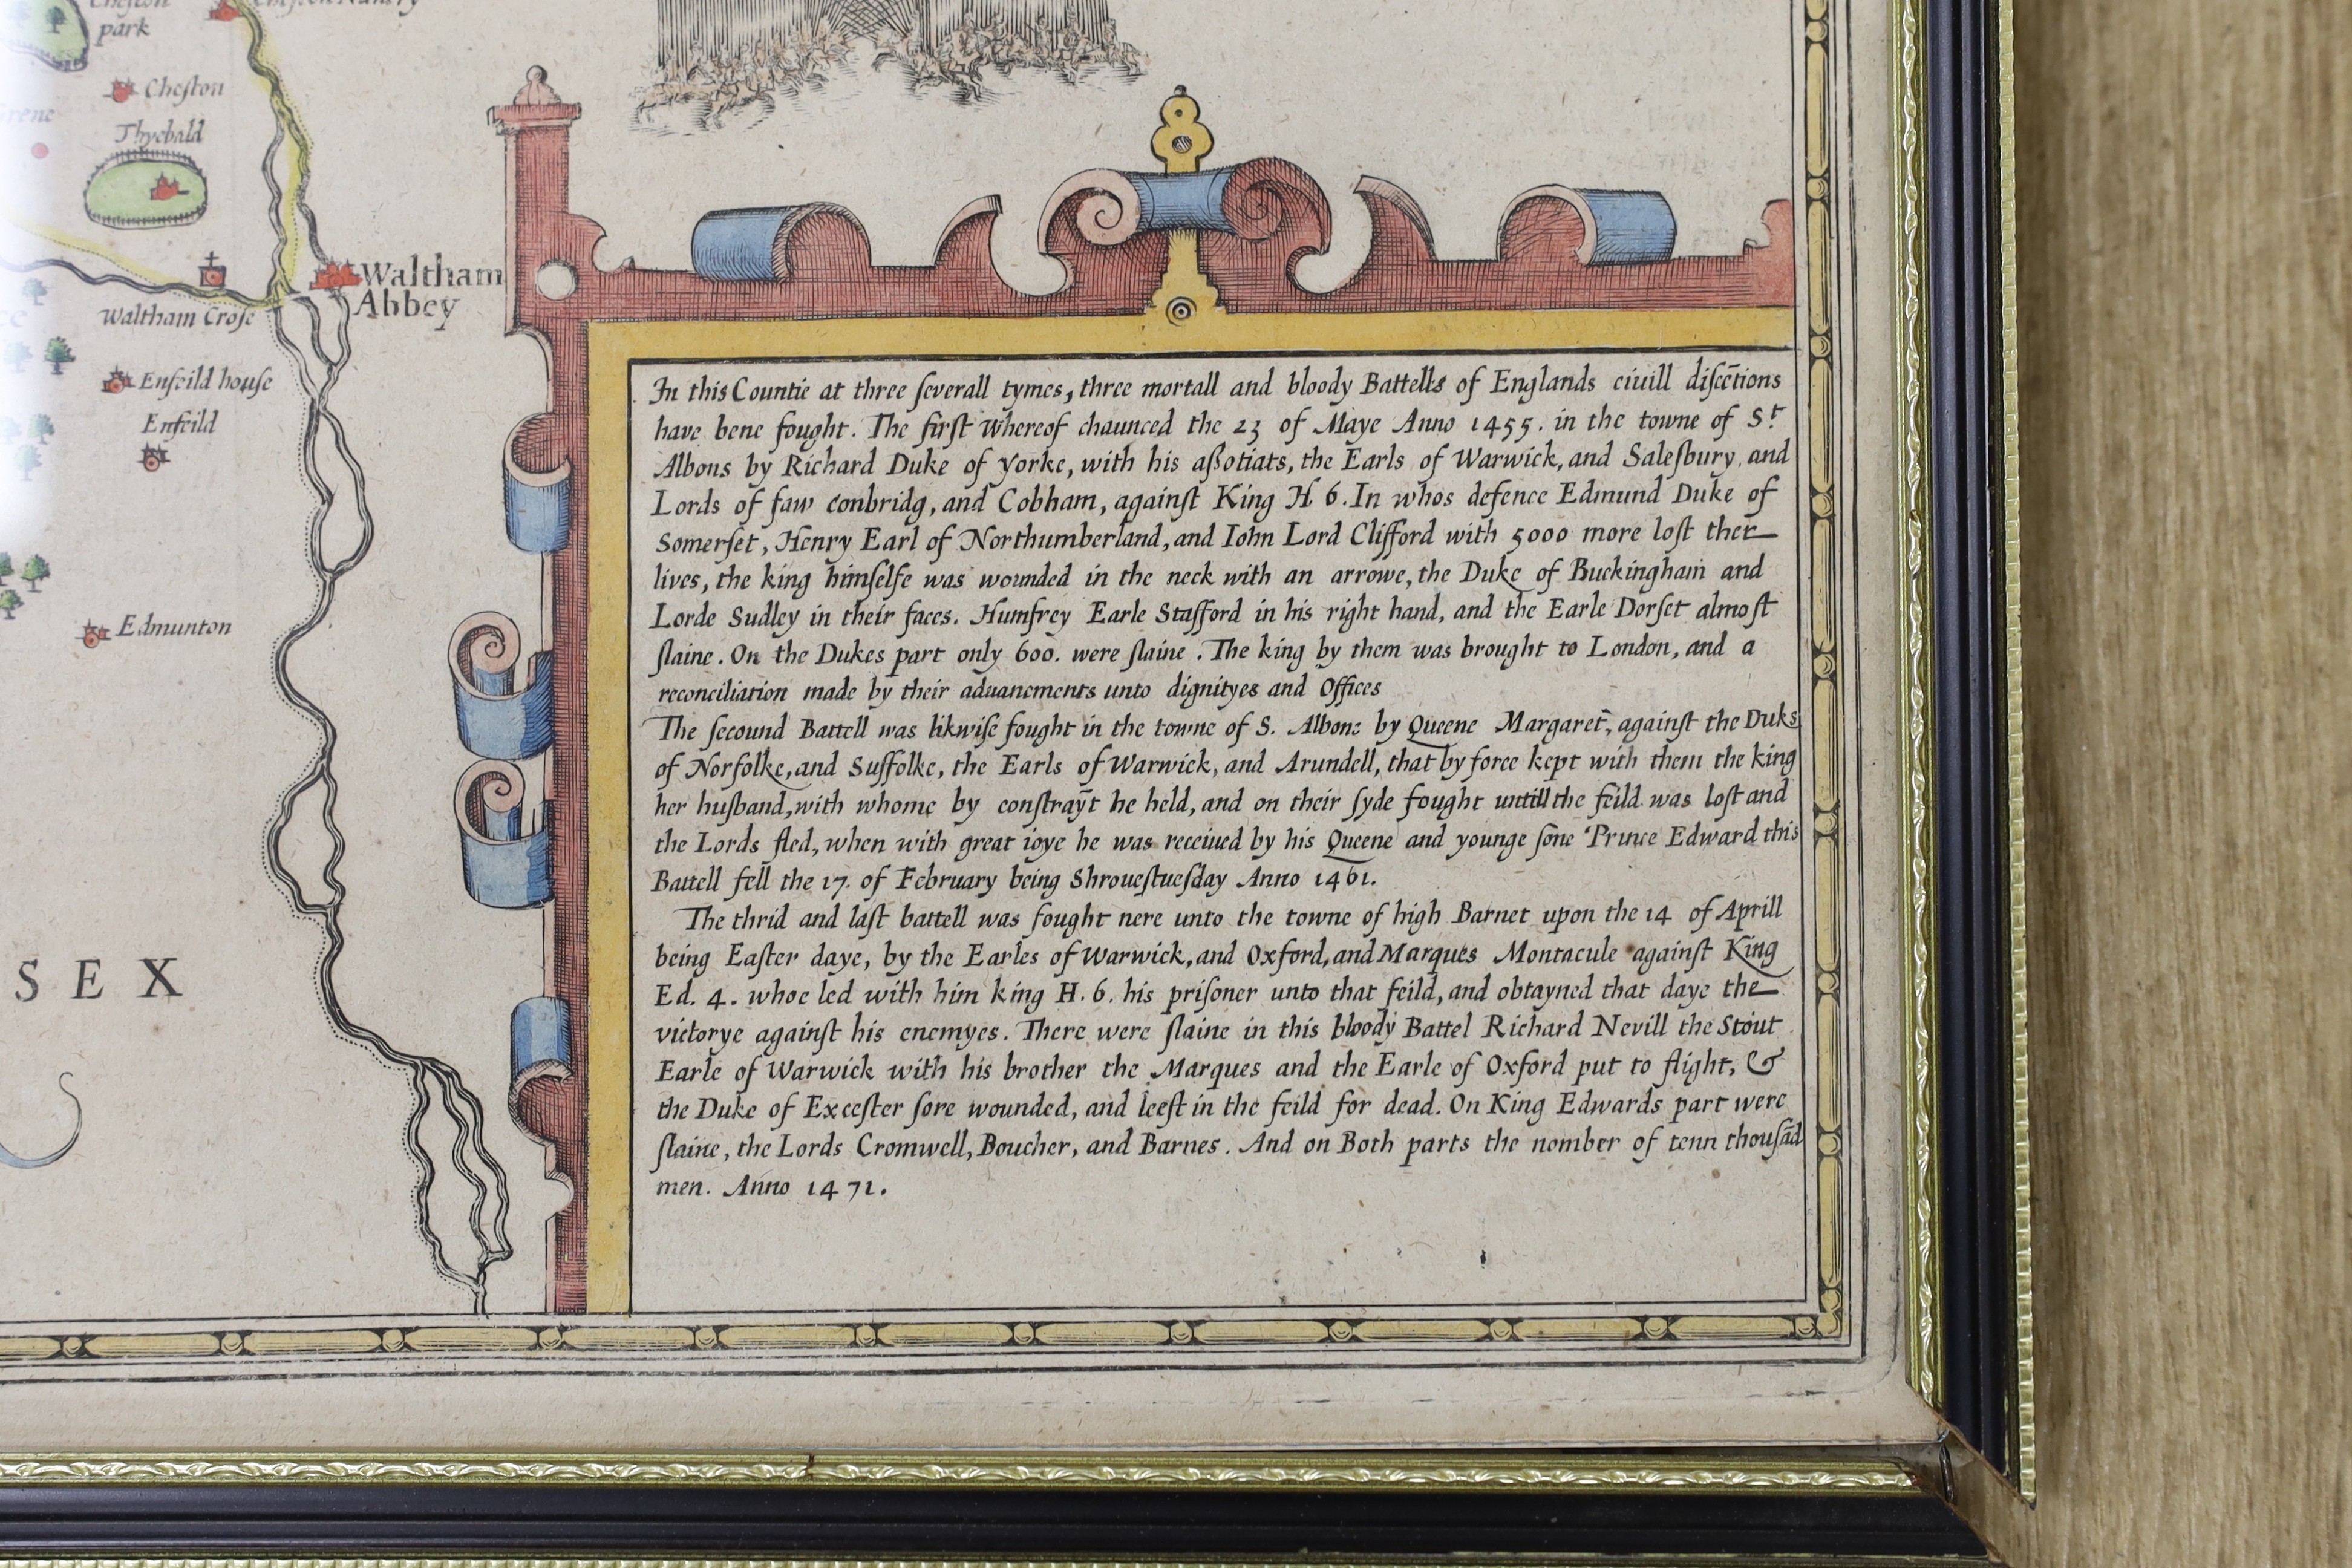 park
Cheſton
Thyebald
Waltham
Abbey
Waltham Croſe
Enfeild houſe
Enfeild
Edmunton
SEX
In this Countie at three ſeverall tymes, three mortall and bloody Battells of Englands ciuill diſcētions
have bene fought. The firſt whereof chaunced the 23 of Maye Anno 1455. in the towne of St
Albons by Richard Duke of Yorke, with his aßotiats, the Earls of Warwick, and Salesbury, and
Lords of faw conbridg, and Cobham, againſt King H. 6. In whos defence Edmund Duke of
Somerſet, Henry Earl of Northumberland, and Iohn Lord Clifford with 5000 more loſt ther
lives, the king himſelfe was wounded in the neck with an arrowe, the Duke of Buckingham and
Lorde Sudley in their faces. Humfrey Earle Stafford in his right hand, and the Earle Dorſet almoſt
ſlaine. On the Dukes part only 600. were ſlaine. The king by them was brought to London, and a
reconciliation made by their aduancments unto dignityes and Offices
The ſecound Battell was likwiſe fought in the towne of S. Albons by Queene Margaret, againſt the Duks
of Norfolke, and Suffolke, the Earls of Warwick, and Arundell, that by force kept with them the king
her huſband, with whome by conſtraȳt he held, and on their ſyde fought untill the feild was loſt and
the Lords fled, when with great ioye he was receiued by his Queene and younge ſone Prince Edward this
Battell fell the 17. of February being Shroueſtueſday Anno 1461.
The thrid and laſt battell was fought nere unto the towne of high Barnet upon the 14 of Aprill
being Eaſter daye, by the Earles of Warwick, and Oxford, and Marques Montacule againſt King
Ed. 4. whoe led with him king H. 6. his priſoner unto that feild, and obtayned that daye the
victorye againſt his enemyes. There were ſlaine in this bloody Battel Richard Nevill the Stout
Earle of Warwick with his brother the Marques and the Earle of Oxford put to flight, &
the Duke of Exceſter ſore wounded, and leeſt in the feild for dead. On King Edwards part were
ſlaine, the Lords Cromwell, Boucher, and Barnes. And on Both parts the nomber of tenn thouſād
men. Anno 1471.